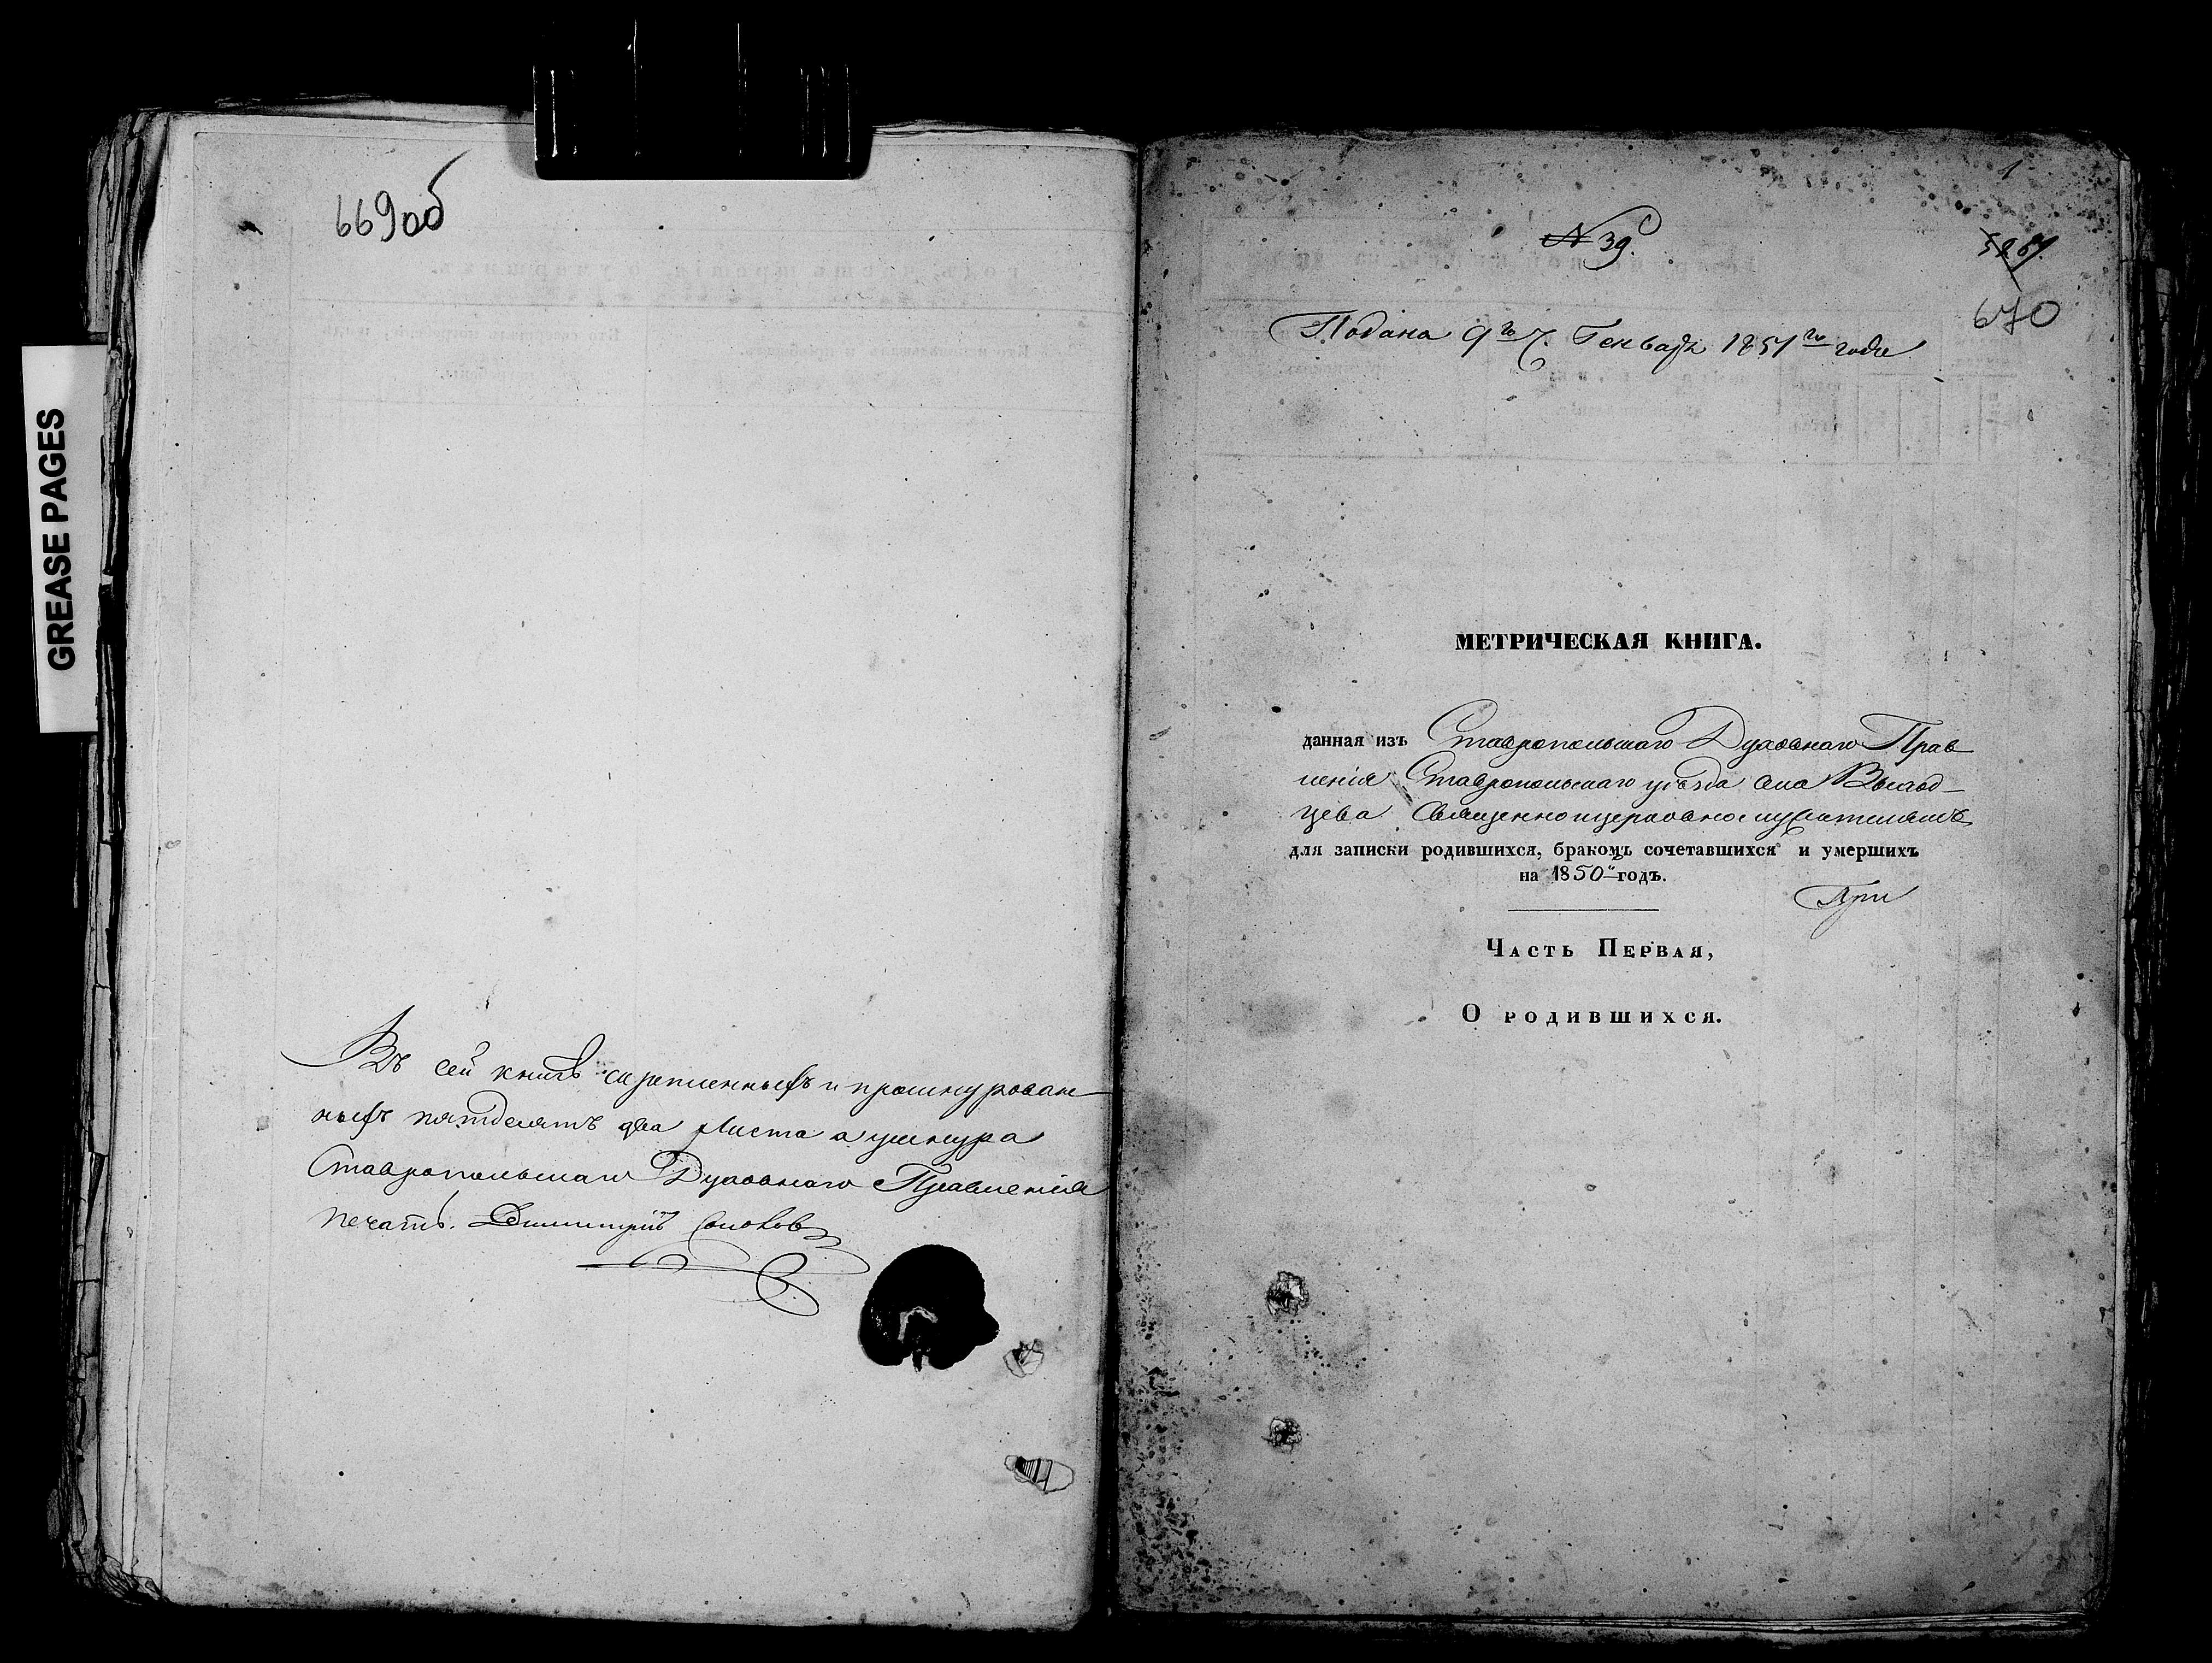 GREASE PAGES
669об
Въ сей книгѣ скрепленныхъ и прошнурован-
ныхъ пятдесятъ два листа а у шнура
Ставропольскаго Духовнаго Правленія
печать. Димитрій Соколовъ
1
№ 39.
670
Подана 9го Ч. Генваря 1851го года
МЕТРИЧЕСКАЯ КНИГА.
данная изъ Ставропольскаго Духовнаго Прав
ленія Ставропольскаго уѣзда села
цева Священноцерковнослужителямъ
для записки родившихся, бракомъ сочетавшихся и умершихъ
на 1850й годъ.
При
Часть Первая,
О родившихся.